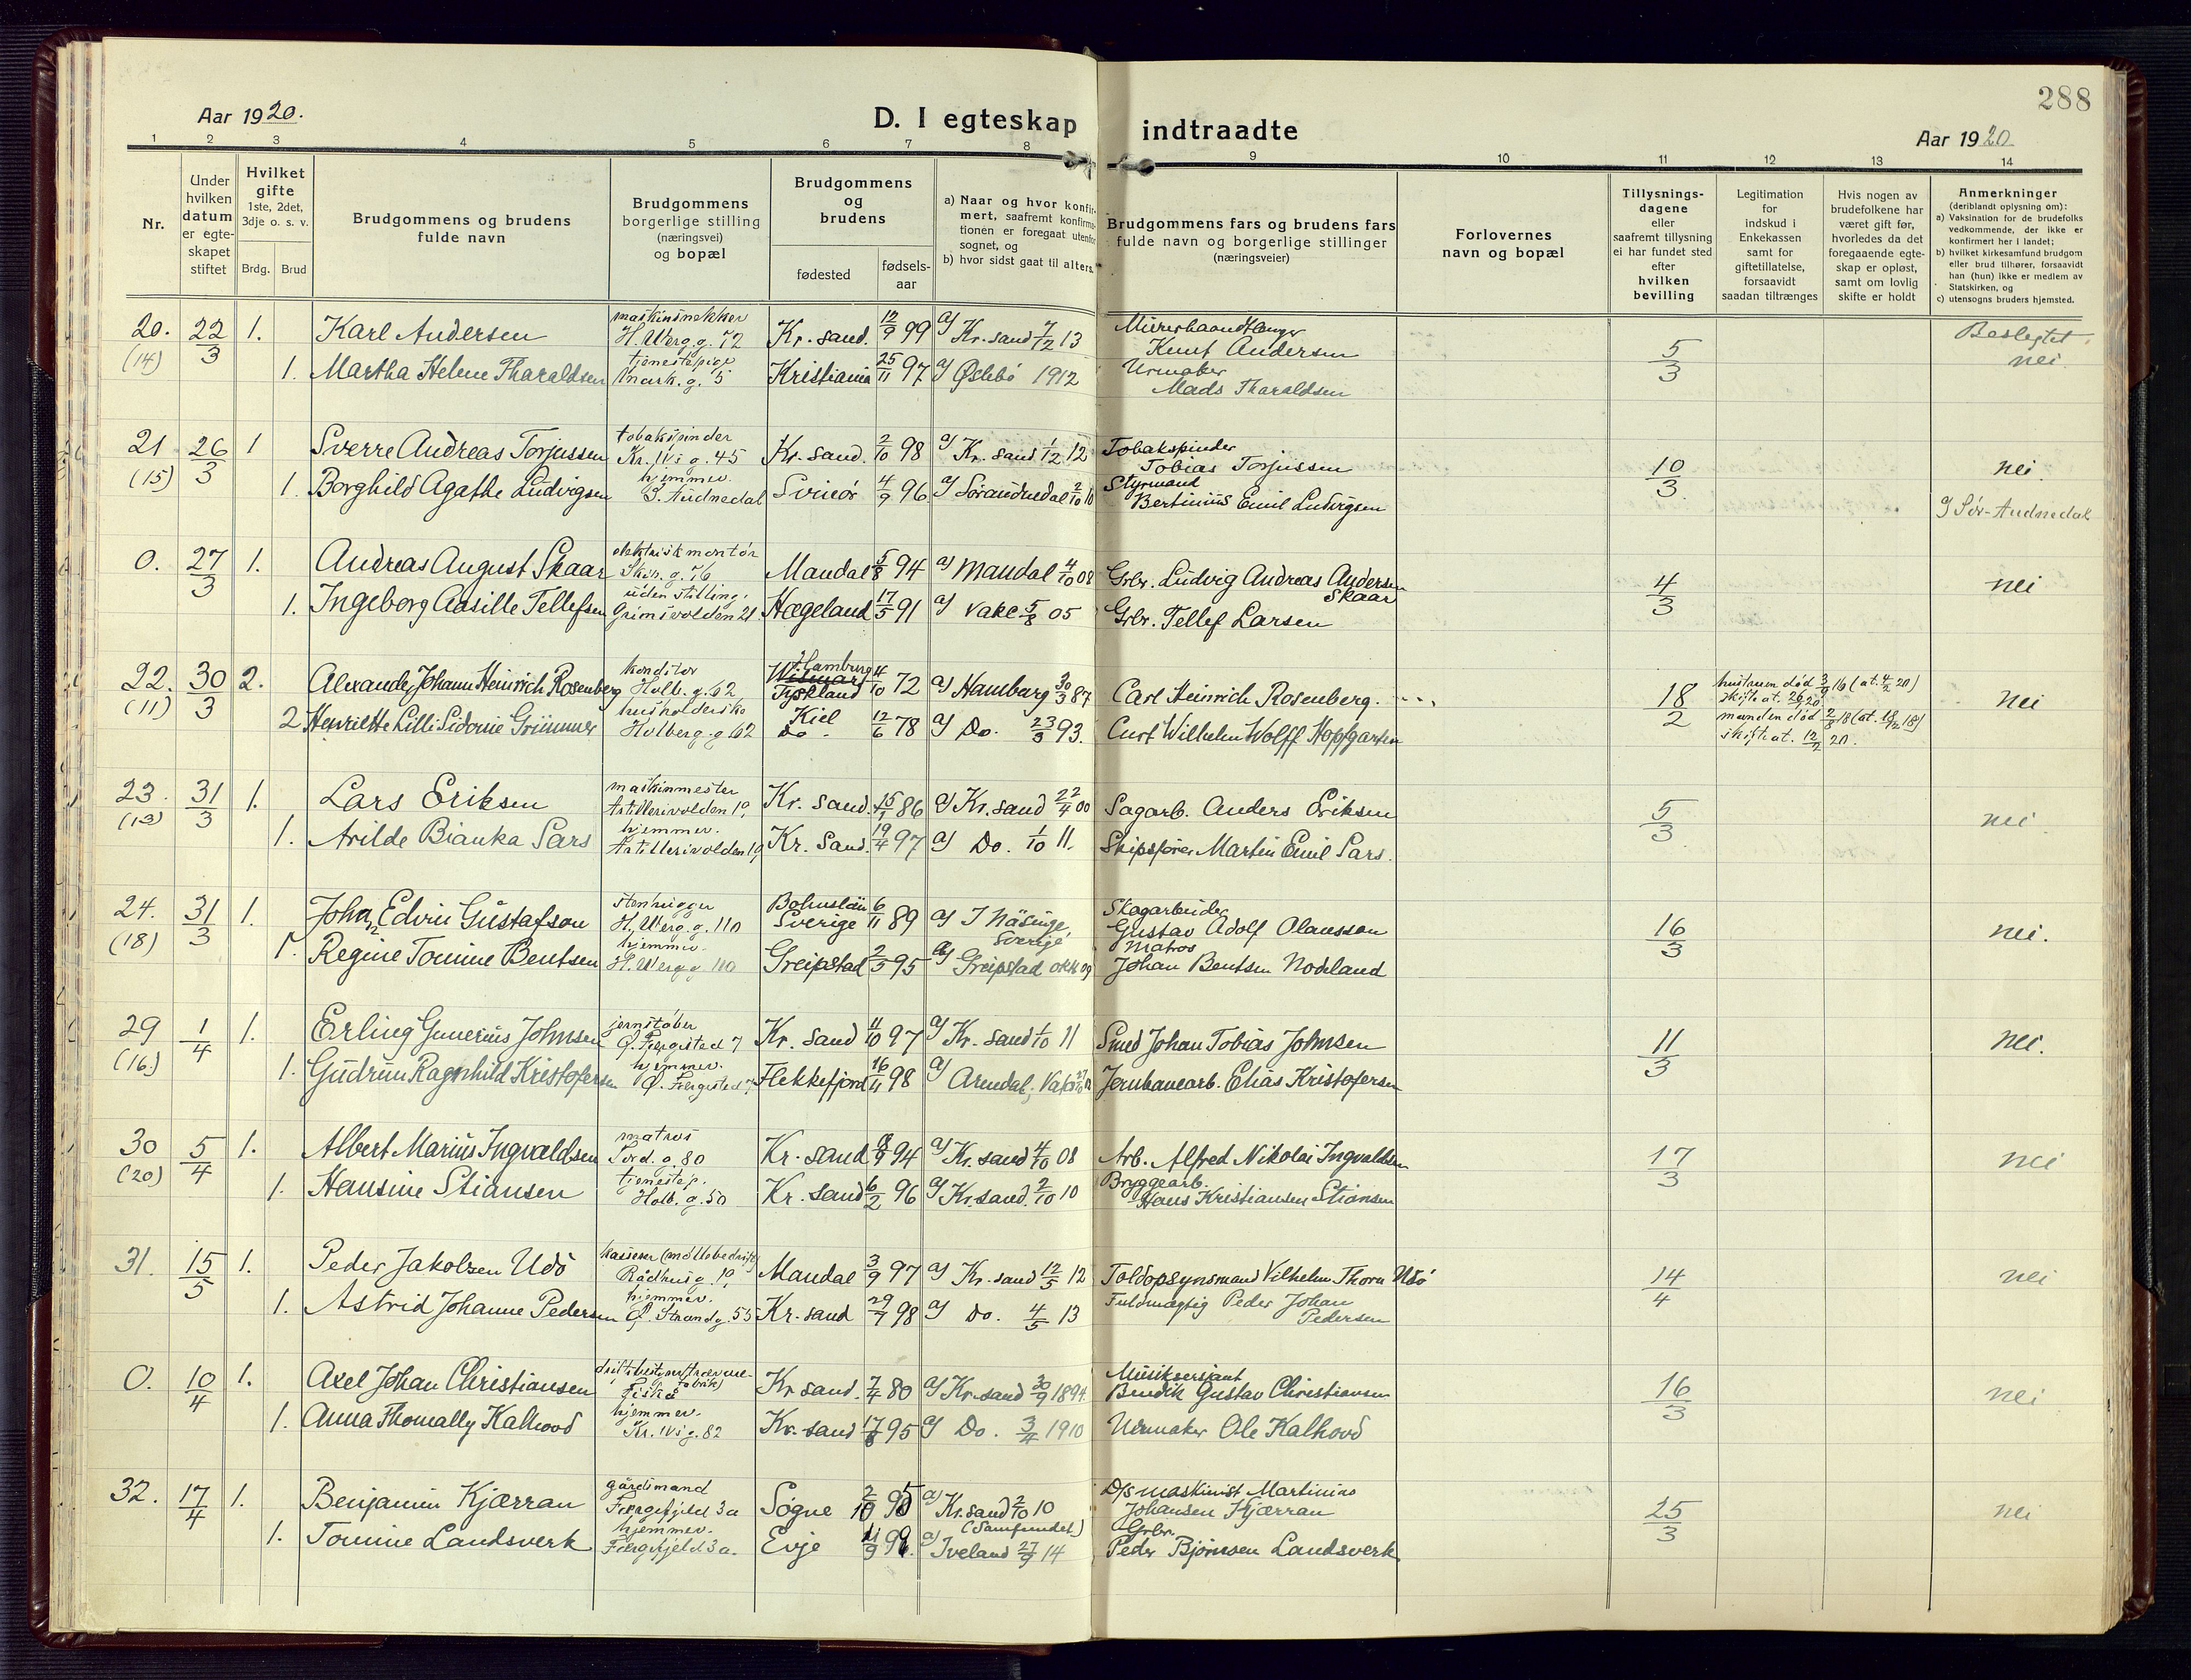 288
Aar 1920.
D. I egteskap indtraadte
Aar 1920
1 2 3 4 5 6 7 8 9 10 11 12 13 14
Nr.
Under hvilken datum er egte-skapet stiftet
Hvilket gifte 1ste, 2det, 3dje o. s. v.
Brdg. Brud
Brudgommens og brudens fulde navn
Brudgommens borgerlige stilling (næringsvei) og bopæl
Brudgommens og brudens
fødested
fødsels-aar
a) Naar og hvor konfir-mert, saafremt konfirma-tionen er foregaat utenfor sognet, og
b) hvor sidst gaat til alters.
Brudgommens fars og brudens fars fulde navn og borgerlige stillinger (næringsveier)
Forlovernes navn og bopæl
Tillysnings-dagene eller saafremt tillysning ei har fundet sted efter hvilken bevilling
Legitimation for indskud i Enkekassen samt for giftetillatelse, forsaavidt saadan tiltrænges
Hvis nogen av brudefolkene har været gift før, hvorledes da det foregaaende egte-skap er opløst, samt om lovlig skifte er holdt
Anmerkninger (deriblandt oplysning om):
a) Vaksination for de brudefolks vedkommende, der ikke er konfirmert her i landet;
b) hvilket kirkesamfund brudgom eller brud tilhører, forsaavidt han (hun) ikke er medlem av Statskirken, og
c) utensogns bruders hjemsted.
20. 22/3 1. Karl Andersen maskinsnekker H. Werg. g. 72 Kr. sand. 12/9 99 a) Kr. sand 7/12 13 Murerhaandlanger Knut Andersen 5/3 Beslegtet nei.
(14) 1. Martha Helene Tharaldsen tjenestepige Mark. g. 5 Kristiania 25/11 97 a) Øslebø 1912 Urmaker Mads Tharaldsen
21 26/3 1 Sverre Andreas Torjussen tobakspinder Kr. IVs g. 45 Kr. sand. 2/10 98 a) Kr. sand 1/12 12 Tobakspinder Tobias Torjussen 10/3 nei.
(15) 1. Borghild Agathe Ludvigsen hjemmev. S. Audnedal Svinør 4/9 96. a) Søraudnedal 2/10 10 Styrmand Bertinius Emil Ludvigsen c) Sør-Audnedal
0. 27/3 1. Andreas August Skaar elektrisk montør Skip. g. 76 Mandal 5/8 94 a) Mandal 4/10 08 Grbr. Ludvig Andreas Andersen Skaar 4/3 nei
1. Ingeborg Aasille Tellefsen uden stilling. Grimsvolden 21. Hægeland 17/5 91 a) Vake 5/8 05 Grbr. Tellef Larsen
22. 30/3 2. Alexander Johann Heinrich Rosenberg konditor Holb. g. 62 Hamburg Wismar Tyskland 4/10 72 a) Hamburg 30/3 87 Carl Heinrich Rosenberg. 18/2 hustruen død 3/9 16 (at. 4/2 20) skifteat. 26/2 20 nei
(11) 2 Henriette Lilli Sidonie Grümmer husholderske Holberg. g. 62 Kiel Do. 12/6 78 a) Do. 23/3 93. Curt Wilhelm Wolff Hopfgarten manden død 2/8 18 (at. 18/12 18) skifteat. 12/2 20.
23. 31/3 1. Lars Eriksen maskinmester Artillerivolden 19 Kr. sand. 15/1 86 a) Kr. sand 22/4 00 Sagarb. Anders Eriksen 5/3 nei
(13) 1. Arilde Bianka Sars hjemmev. Artillerivolden 19 Kr. sand. 19/4 97 a) Do. 1/10 11. Skipsfører Martin Emil Sars.
24. 31/3 1. Johan Edvin Gustafson stenhugger H. Werg. g. 110 Bohuslän Sverige 6/11 89 a) I Näsinge, Sverige Skogarbeider Gustav Adolf Olausson 16/3 nei.
(18) 1. Regine Tomine Bentsen hjemmev. H. Werg. g 110 Greipstad 2/5 95 a) Greipstad okt 09 Matros Johan Bentsen Nodeland
29 1/4 1. Erling Gunerius Johnsen jernstøber Ø. Fergested 7 Kr. sand 4/10 97 a) Kr. sand 1/10 11 Smed Johan Tobias Johnsen 11/3 nei.
(16.) 1. Gudrun Ragnhild Kristofersen hjemmev. Ø. Fergested 7 Flekkefjord 16/11 98 a) Arendal. Jernbanearb. Elias Kristofersen
30 5/4 1. Albert Marius Ingvaldsen matros Tord. g. 80 Kr. sand 8/9 94 a) Kr. sand 4/10 08 Arb. Alfred Nikolai Ingvaldsen 17/3 nei
(20) 1. Hansine Stiansen tjenestep. Holb. g. 50 Kr. sand 6/2 96 a) Kr. sand. 2/10 10 Bryggearb. Hans Kristiansen Stiansen
31. 15/5 1. Peder Jakobsen Udø kasserer Rådhusg. 19 Mandal 3/9 97 a) Kr. sand 12/5 12 Toldopsynsmand Vilhelm Thorn Udø 14/4 nei
1. Astrid Johanne Pedersen hjemmev. Ø. Strandg. 55 Kr. sand 29/7 98 a) Do. 4/5 13 Fuldmægtig Peder Johan Pedersen
0. 10/4 1. Axel Johan Christiansen Fiskå Kr. sand. 7/4 80 a) Kr. sand 30/9 1894. Musiksersjant Bendik Gustav Christiansen 16/3 nei
1. Anna Thomally Kalhovd hjemmev. Kr. IVs g. 82 Kr. sand 17/8 95 a) Do. 3/4 1910 Urmaker Ole Kalhovd
32. 17/4 1. Benjamin Kjærran gårdsmand Fergefjeld 3a Søgne 2/10 95 a) Kr. sand 2/10 10 (Samfundet) D/s maskinist Martinius Johansen Kjærran 25/3 nei
1. Tomine Landsverk hjemmev. Fergefjeld 3a. Evje 11/9 99. a) Iveland 27/9 14 Grbr. Peder Bjørnsen Landsverk